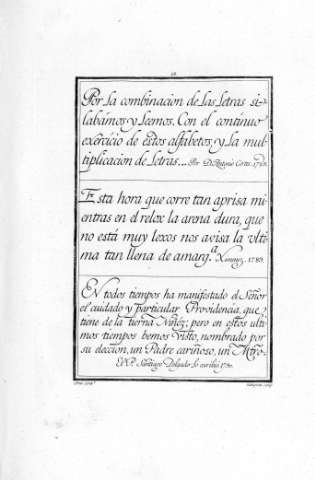 Por la combinacion de las letras si-
labámos y leemos. Con el continuo
exercicio de éstos alfabetos, y la mul-
tiplicacion de letras... Por D. Antonio Cortes.
Esta hora que corre tan aprisa mi-
entras en el relox la arena dura, que
no está muy lexos nos avisa la vlti-
ma tan llena de amarg.ª Ximenez. 1789.
EN todos tiempos ha manifestado el Señor
el cuidado y particular Providencia, que
tiene de la tierna Niñez; pero en estos ulti-
mos tiempos hemos visto, nombrado por
su eleccion, un Padre cariñoso, un Mtro.
El P. Santiago Delgado lo escribió